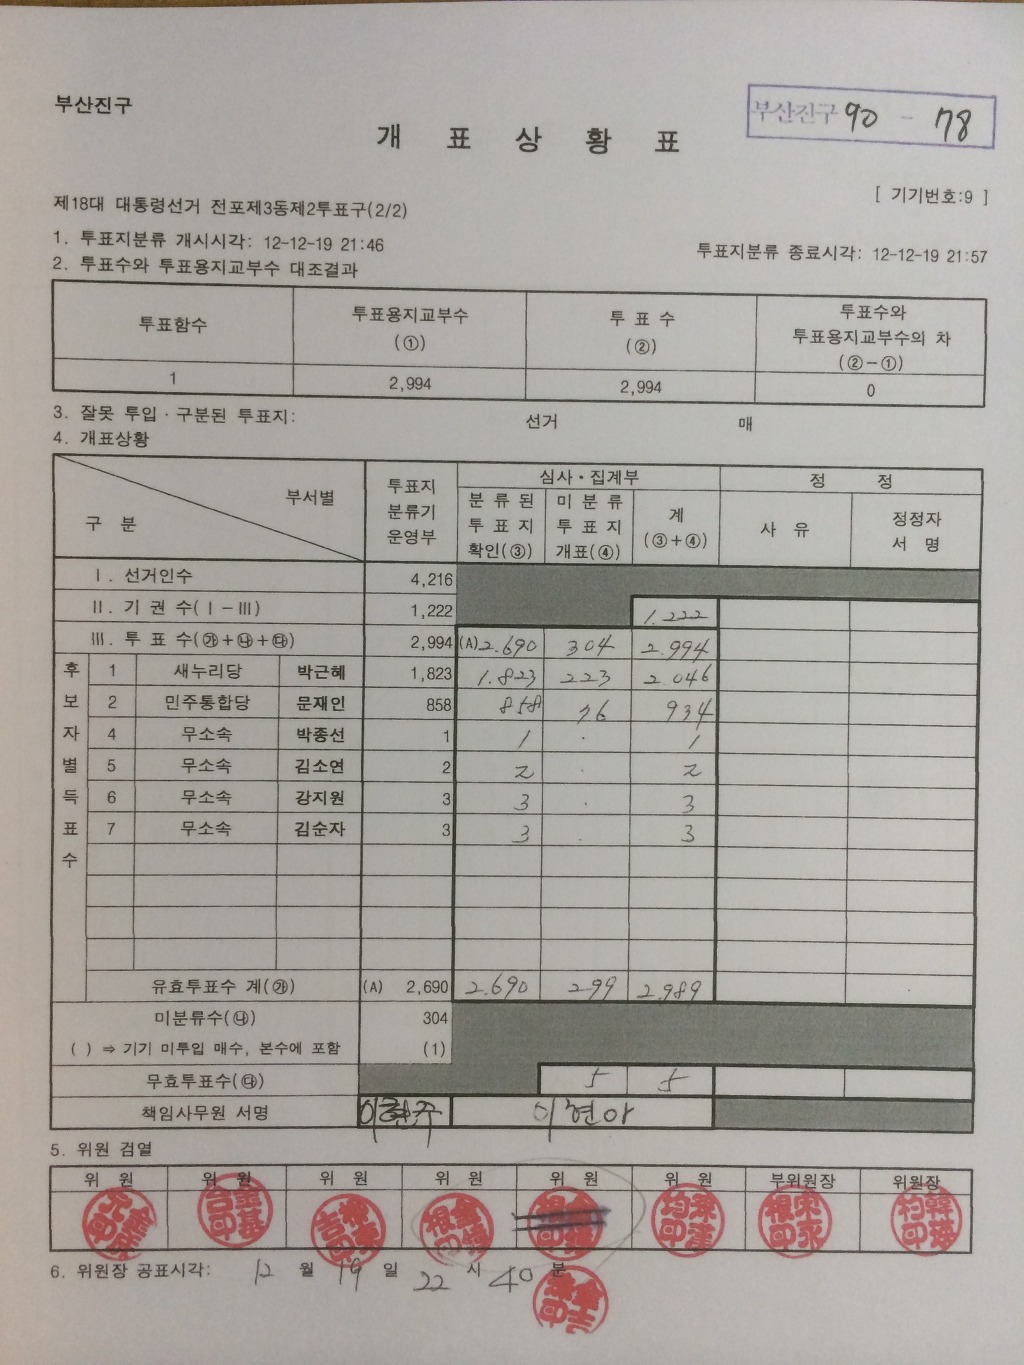 부산진구
부산진구 90 - 78
개 표 상 황 표
[ 기기번호:9 ]
제18대 대통령선거 전포제3동제2투표구(2/2)
1. 투표지분류 개시시각: 12-12-19 21:46
투표지분류 종료시각: 12-12-19 21:57
2. 투표수와 투표용지교부수 대조결과
투표함수 투표용지교부수 (①) 투 표 수 (②) 투표수와 투표용지교부수의 차 (②-①)
1 2,994 2,994 0
3. 잘못 투입·구분된 투표지: 선거 매
4. 개표상황
구 분 부서별 투표지 분류기 운영부 심사·집계부 정 정
분 류 된 투 표 지 확인(③) 미 분 류 투 표 지 개표(④) 계 (③+④) 사 유 정정자 서 명
Ⅰ. 선거인수 4,216
Ⅱ. 기 권 수(Ⅰ-Ⅲ) 1,222 1.222
Ⅲ. 투 표 수(㉮+㉯+㉰) 2,994 (A)2.690 304 2.994
후보자별득표수
1 새누리당 박근혜 1,823 1.823 223 2.046
2 민주통합당 문재인 858 858 76 934
4 무소속 박종선 1 1 · 1
5 무소속 김소연 2 2 · 2
6 무소속 강지원 3 3 · 3
7 무소속 김순자 3 3 · 3
유효투표수 계(㉮) (A) 2,690 2.690 299 2.989
미분류수(㉯) 304
( ) ⇒ 기기 미투입 매수, 본수에 포함 (1)
무효투표수(㉰) 5 5
책임사무원 서명 이현주 이현아
5. 위원 검열
위 원 위 원 위 원 위 원 위 원 위 원 부위원장 위원장
6. 위원장 공표시각: 12 월 19 일 22 시 40 분